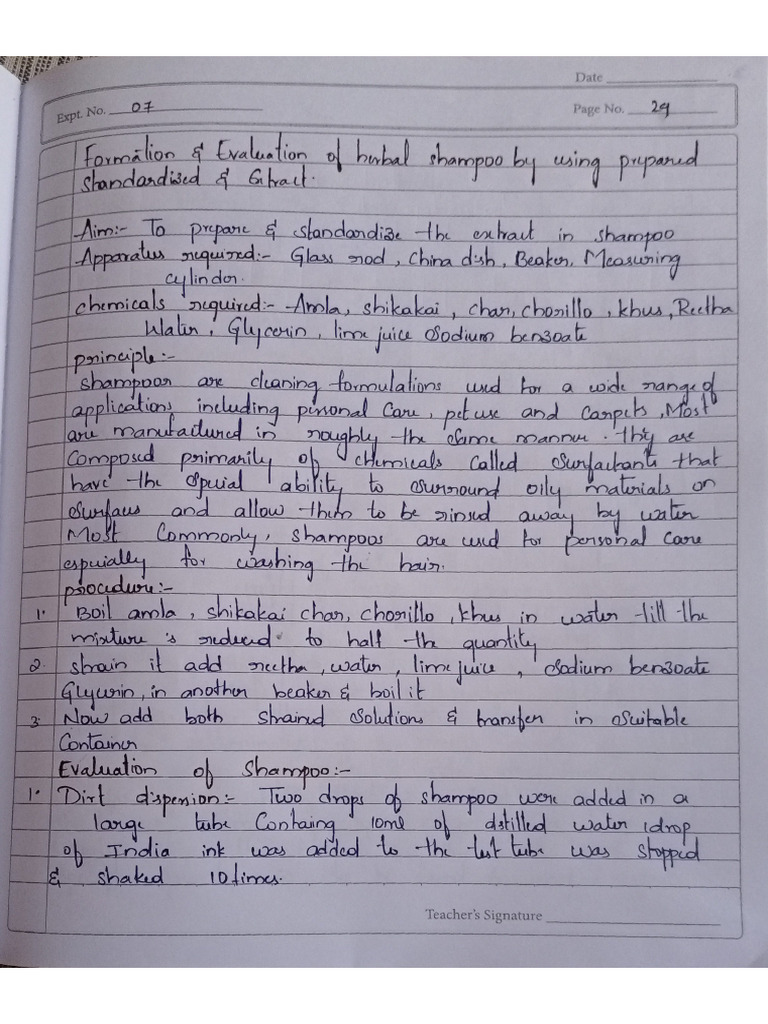 Date
Expt. No. 07
Page No. 29
Formation & Evaluation of herbal shampoo by using prepared
Standardised & Extract.
Aim:- To prepare & standardize the extract in shampoo
Apparatus required:- Glass rod, China dish, Beaker, Measuring
cylinder.
chemicals required:- Amla, shikakai, char, chorillo, khus, Reetha
Water, Glycerin, lime juice Sodium benzoate
principle:-
shampoos are cleaning formulations used for a wide range of
applications including personal Care, pet use and Carpets, Most
are manufactured in roughly the same manner. They are
Composed primarily of chemicals called surfactants that
have the special ability to surround oily materials on
surfaces and allow them to be rinsed away by water
Most Commonly, shampoos are used for personal care
especially for washing the hair.
procedure:-
1. Boil amla, shikakai char, chorillo, khus in water till the
mixture is reduced to half the quantity
2. strain it add reetha, water, lime juice, Sodium benzoate
Glycerin, in another beaker & boil it
3. Now add both strained solutions & transfer in suitable
Container
Evaluation of Shampoo:-
1. Dirt dispersion:- Two drops of shampoo were added in a
large tube Containg 10ml of distilled water 1drop
of India ink was added to the test tube was stopped
& shaked 10 times.
Teacher's Signature